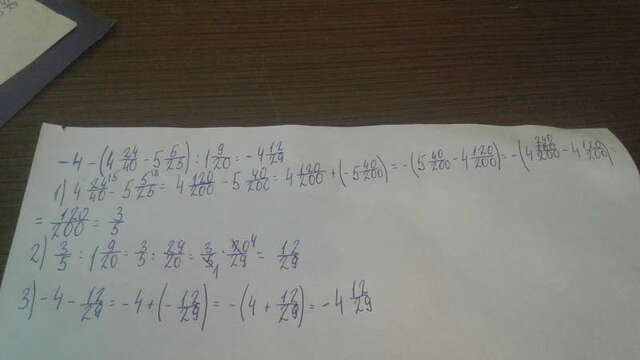 -4-(4 24/40 - 5 5/25) : 1 9/20 = -4 12/29
1) 4 24/40 - 5 5/25 = 4 120/200 - 5 40/200 = 4 120/200 + (-5 40/200) = -(5 40/200 - 4 120/200) = -(4 240/200 - 4 120/200)
= 120/200 = 3/5
2) 3/5 : 1 9/20 = 3/5 : 29/20 = 3/5 · 20/29 = 12/29
3) -4 - 12/29 = -4 + (-12/29) = -(4 + 12/29) = -4 12/29